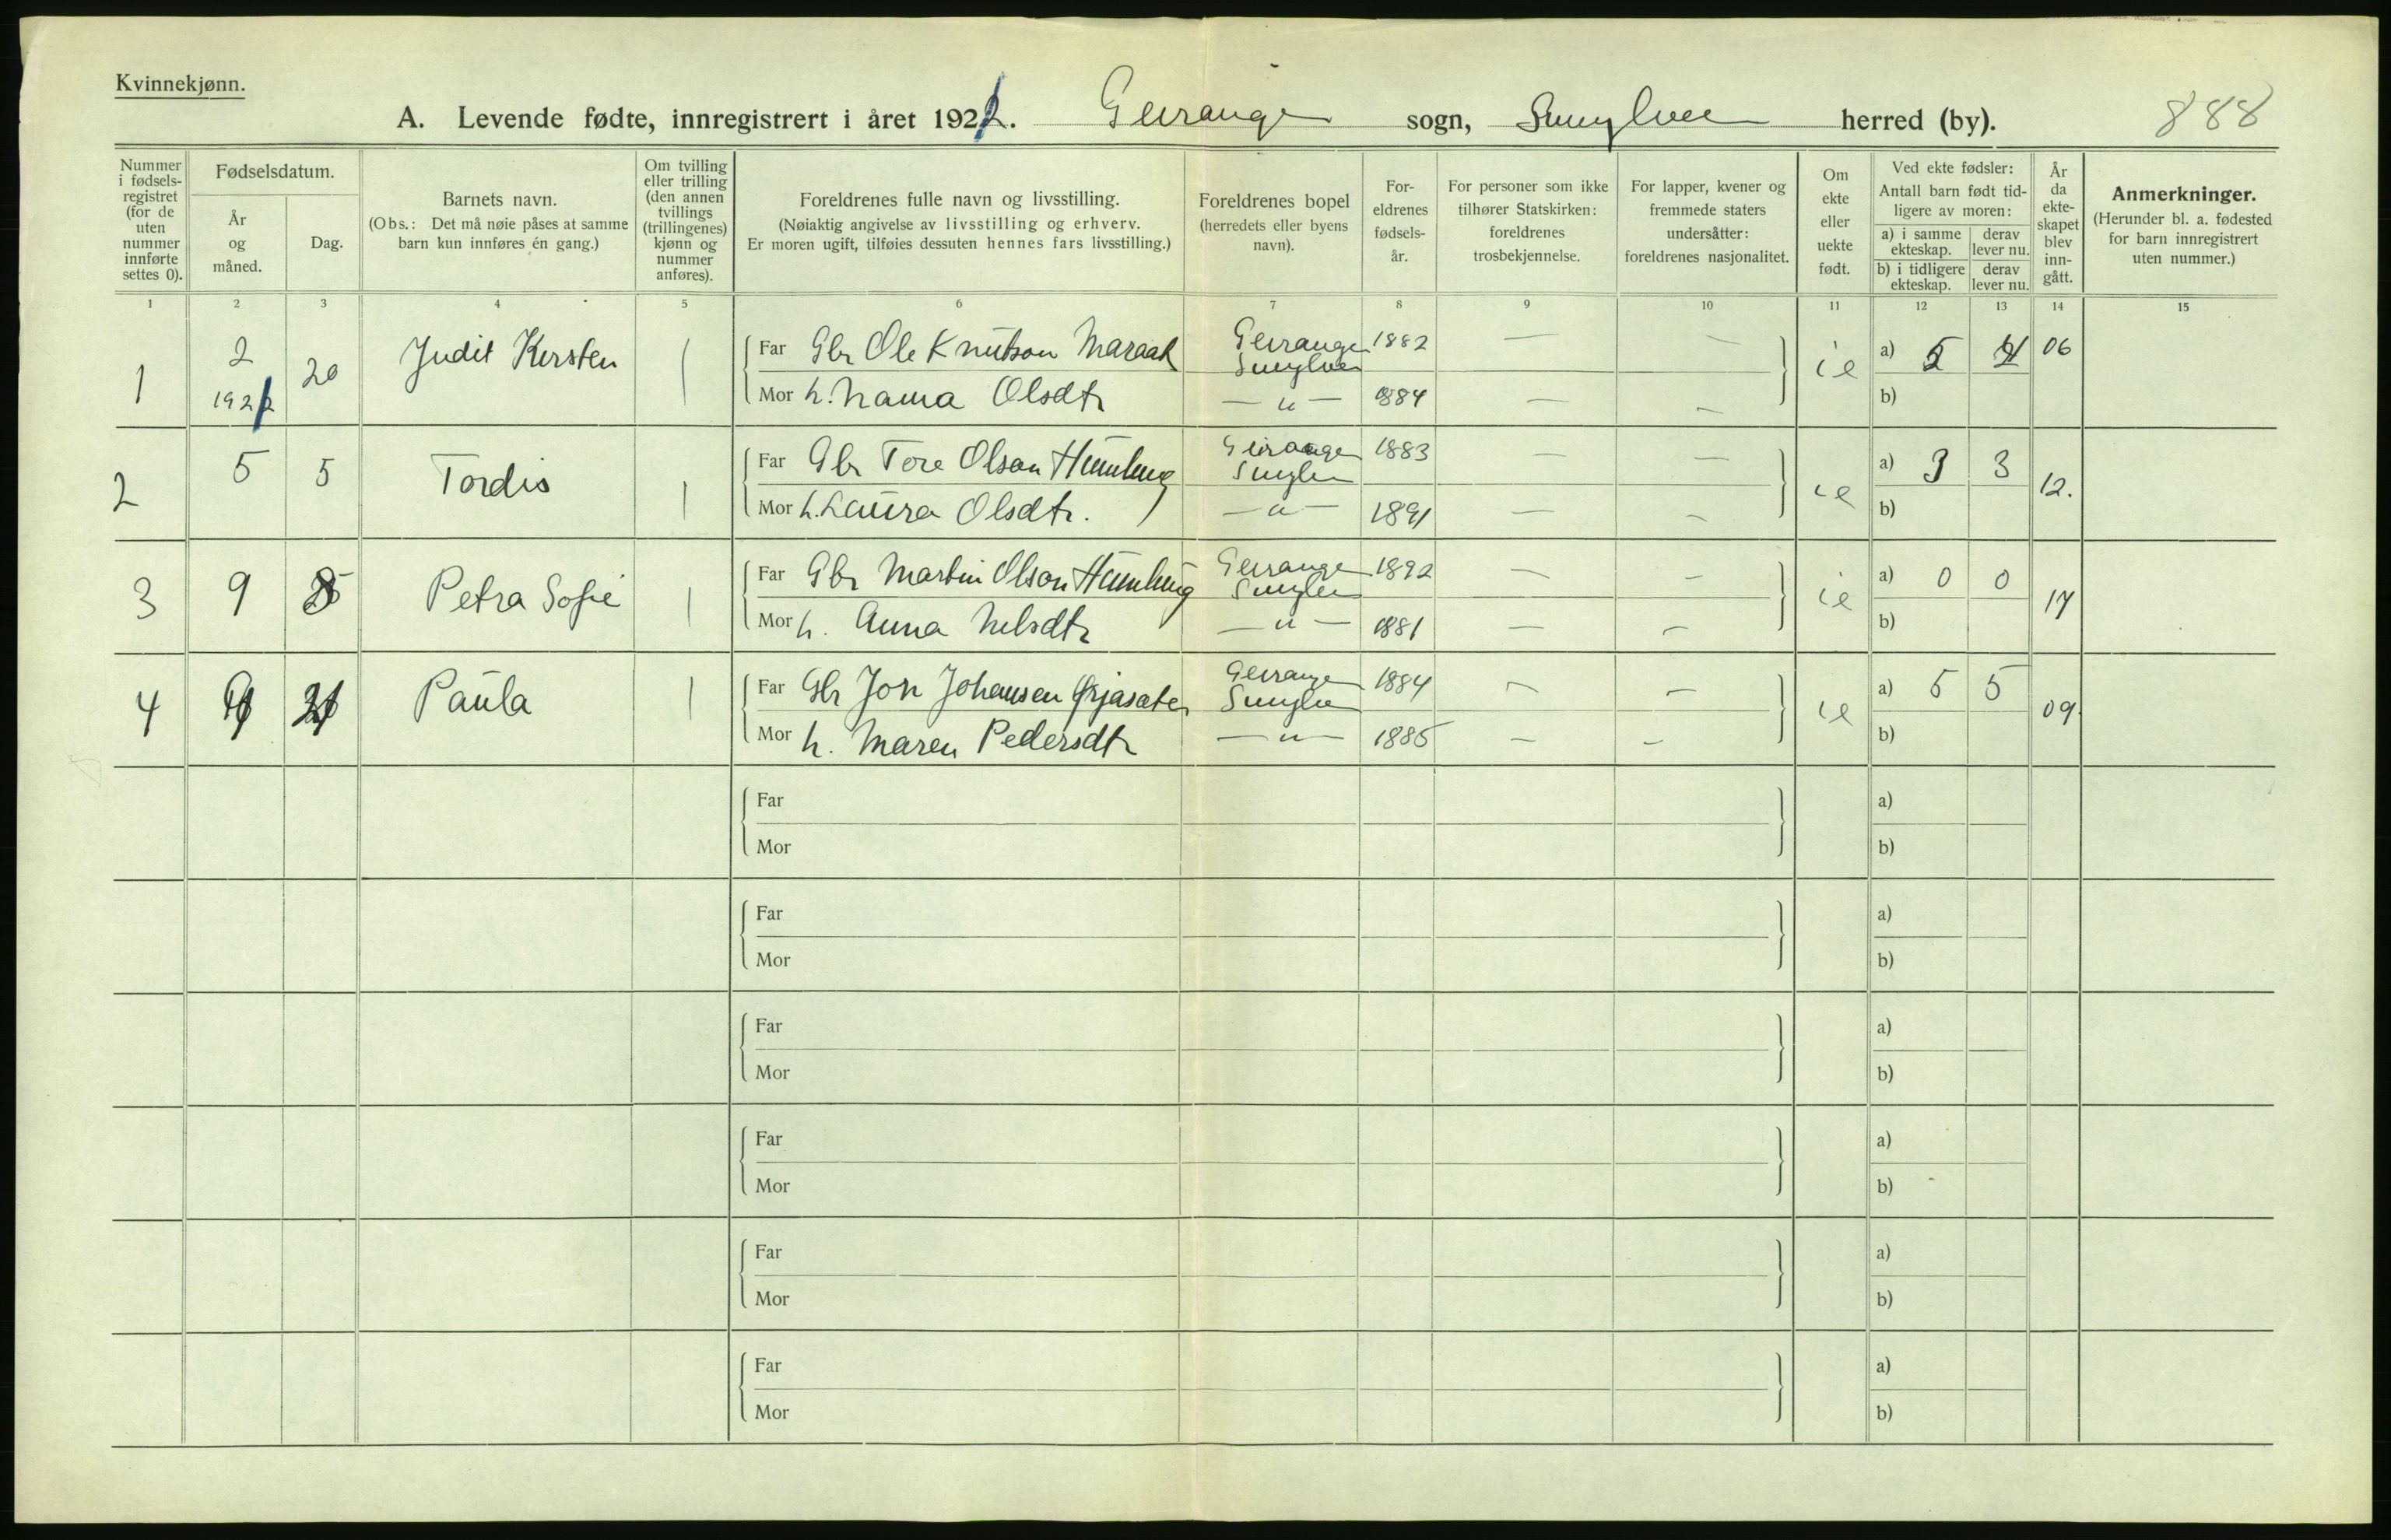 Kvinnekjønn.
A. Levende fødte, innregistrert i året 1922. Geiranger sogn, Sunylven herred (by). 888
Nummer i fødselsregistret (for de uten nummer innførte settes 0).
Fødselsdatum.
År og måned.
Dag.
Barnets navn.
(Obs.: Det må nøie påses at samme barn kun innføres én gang.)
Om tvilling eller trilling (den annen tvillings (trillingenes) kjønn og nummer anføres).
Foreldrenes fulle navn og livsstilling.
(Nøiaktig angivelse av livsstilling og erhverv.
Er moren ugift, tilføies dessuten hennes fars livsstilling.)
Foreldrenes bopel
(herredets eller byens navn).
Foreldrenes fødselsår.
For personer som ikke tilhører Statskirken: foreldrenes trosbekjennelse.
For lapper, kvener og fremmede staters undersåtter: foreldrenes nasjonalitet.
Om ekte eller uekte født.
Ved ekte fødsler:
Antall barn født tidligere av moren:
a) i samme ekteskap. derav lever nu.
b) i tidligere ekteskap. derav lever nu.
År da ekteskapet blev inngått.
Anmerkninger.
(Herunder bl. a. fødested for barn innregistrert uten nummer.)
1 2 3 4 5 6 7 8 9 10 11 12 13 14 15
1 2 1922 20 Judit Kirsten Far Gbr Ole Knutson Maraak Geiranger Sunylven 1882 — — ie a) 5 06
Mor h. Olsdtr — " — 1884 — — b)
2 5 5 Tordis Far Gbr Tore Olson Geiranger Sunylven 1883 — — ie a) 3 3 12.
Mor h. Laura Olsdtr. — " — 1891 — — b)
3 9 Petra Sofie Far Gbr Martin Olson Geiranger Sunylven 1892 — — ie a) 0 0 17
Mor h. Anna Nilsdtr — " — 1881 — — b)
4 Paula Far Gbr Jon Johansen Geiranger Sunylven 1884 — — ie a) 5 5 09.
Mor h. Maren Pedersdtr — " — 1885 — — b)
Far a)
Mor b)
Far a)
Mor b)
Far a)
Mor b)
Far a)
Mor b)
Far a)
Mor b)
Far a)
Mor b)